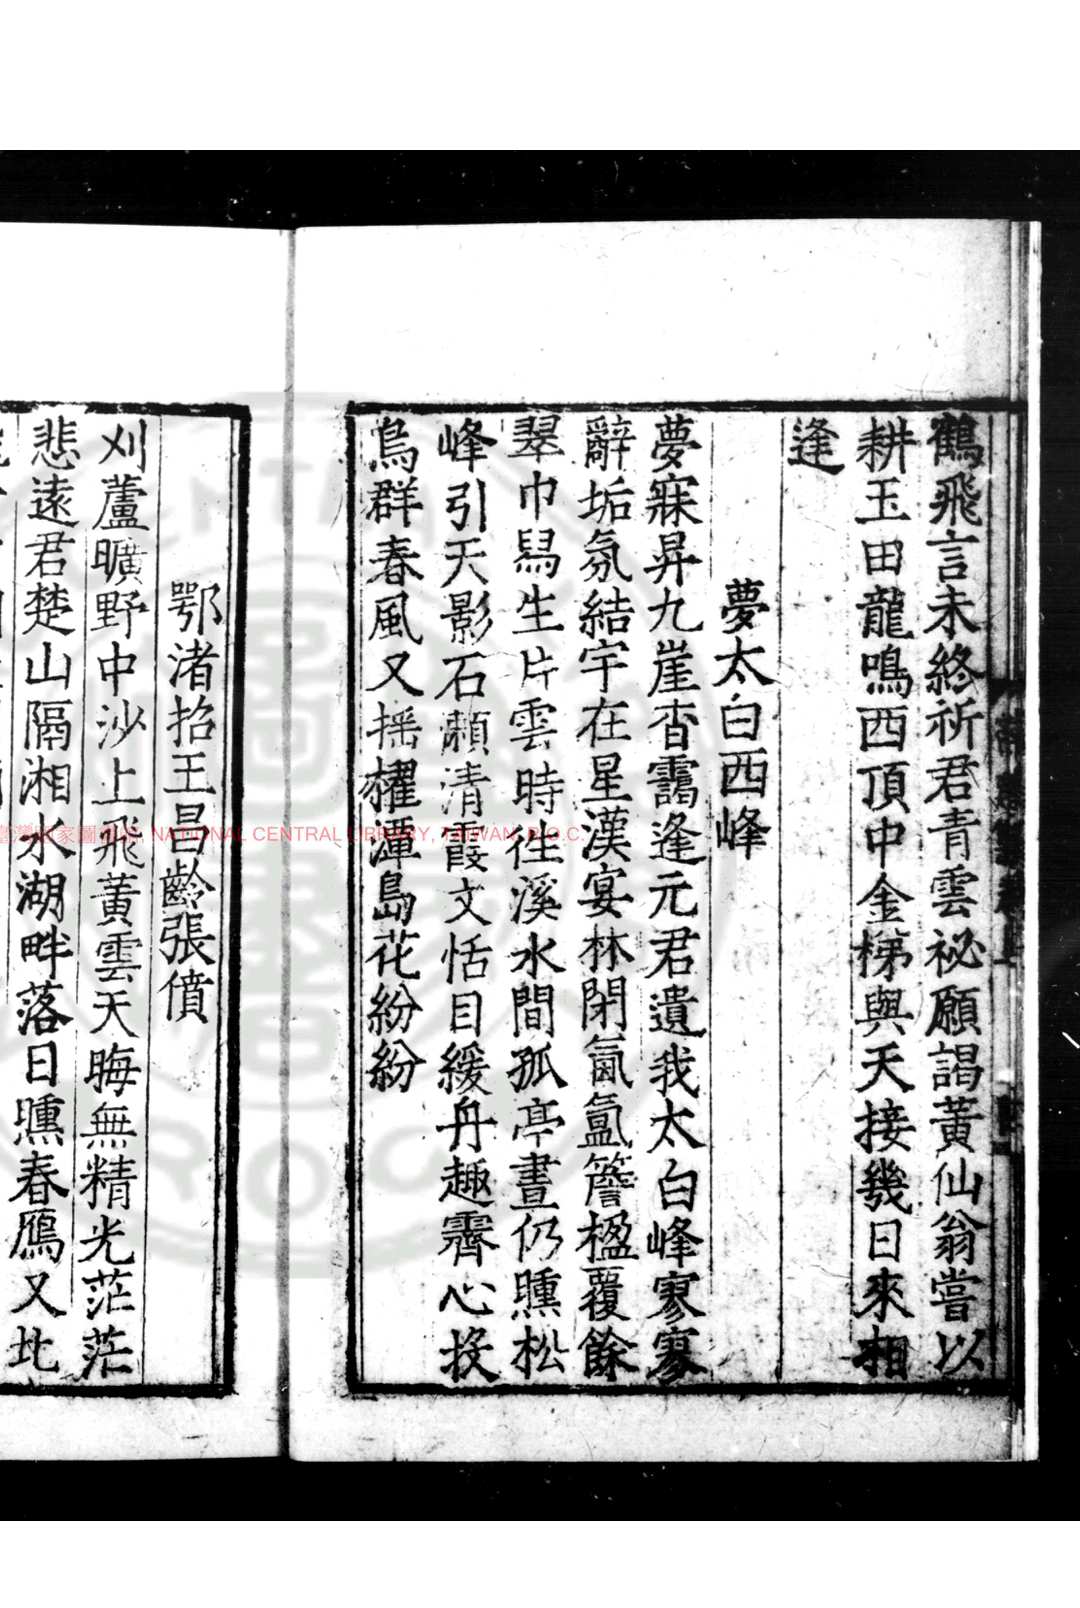 鶴飛言未終祈君青雲祕願謁黃仙翁嘗以
耕玉田龍鳴西頂中金梯與天接幾日來相
逢
夢太白西峰
夢寐昇九崖杳靄逢元君遺我太白峰寥寥
辭垢氛結宇在星漢宴林閉氤氳簷楹覆餘
翠巾舄生片雲時往溪水間孤亭晝仍曛松
峰引天影石瀬清霞文恬目緩舟趣霽心投
鳥群春風又揺櫂潭島花紛紛
鄂渚招王昌齡張僨
刈蘆曠野中沙上飛黃雲天晦無精光茫茫
悲遠君楚山隔湘水湖畔落日曛春鴈又北
NATIONAL CENTRAL LIBRARY, TAIWAN, R.O.C.